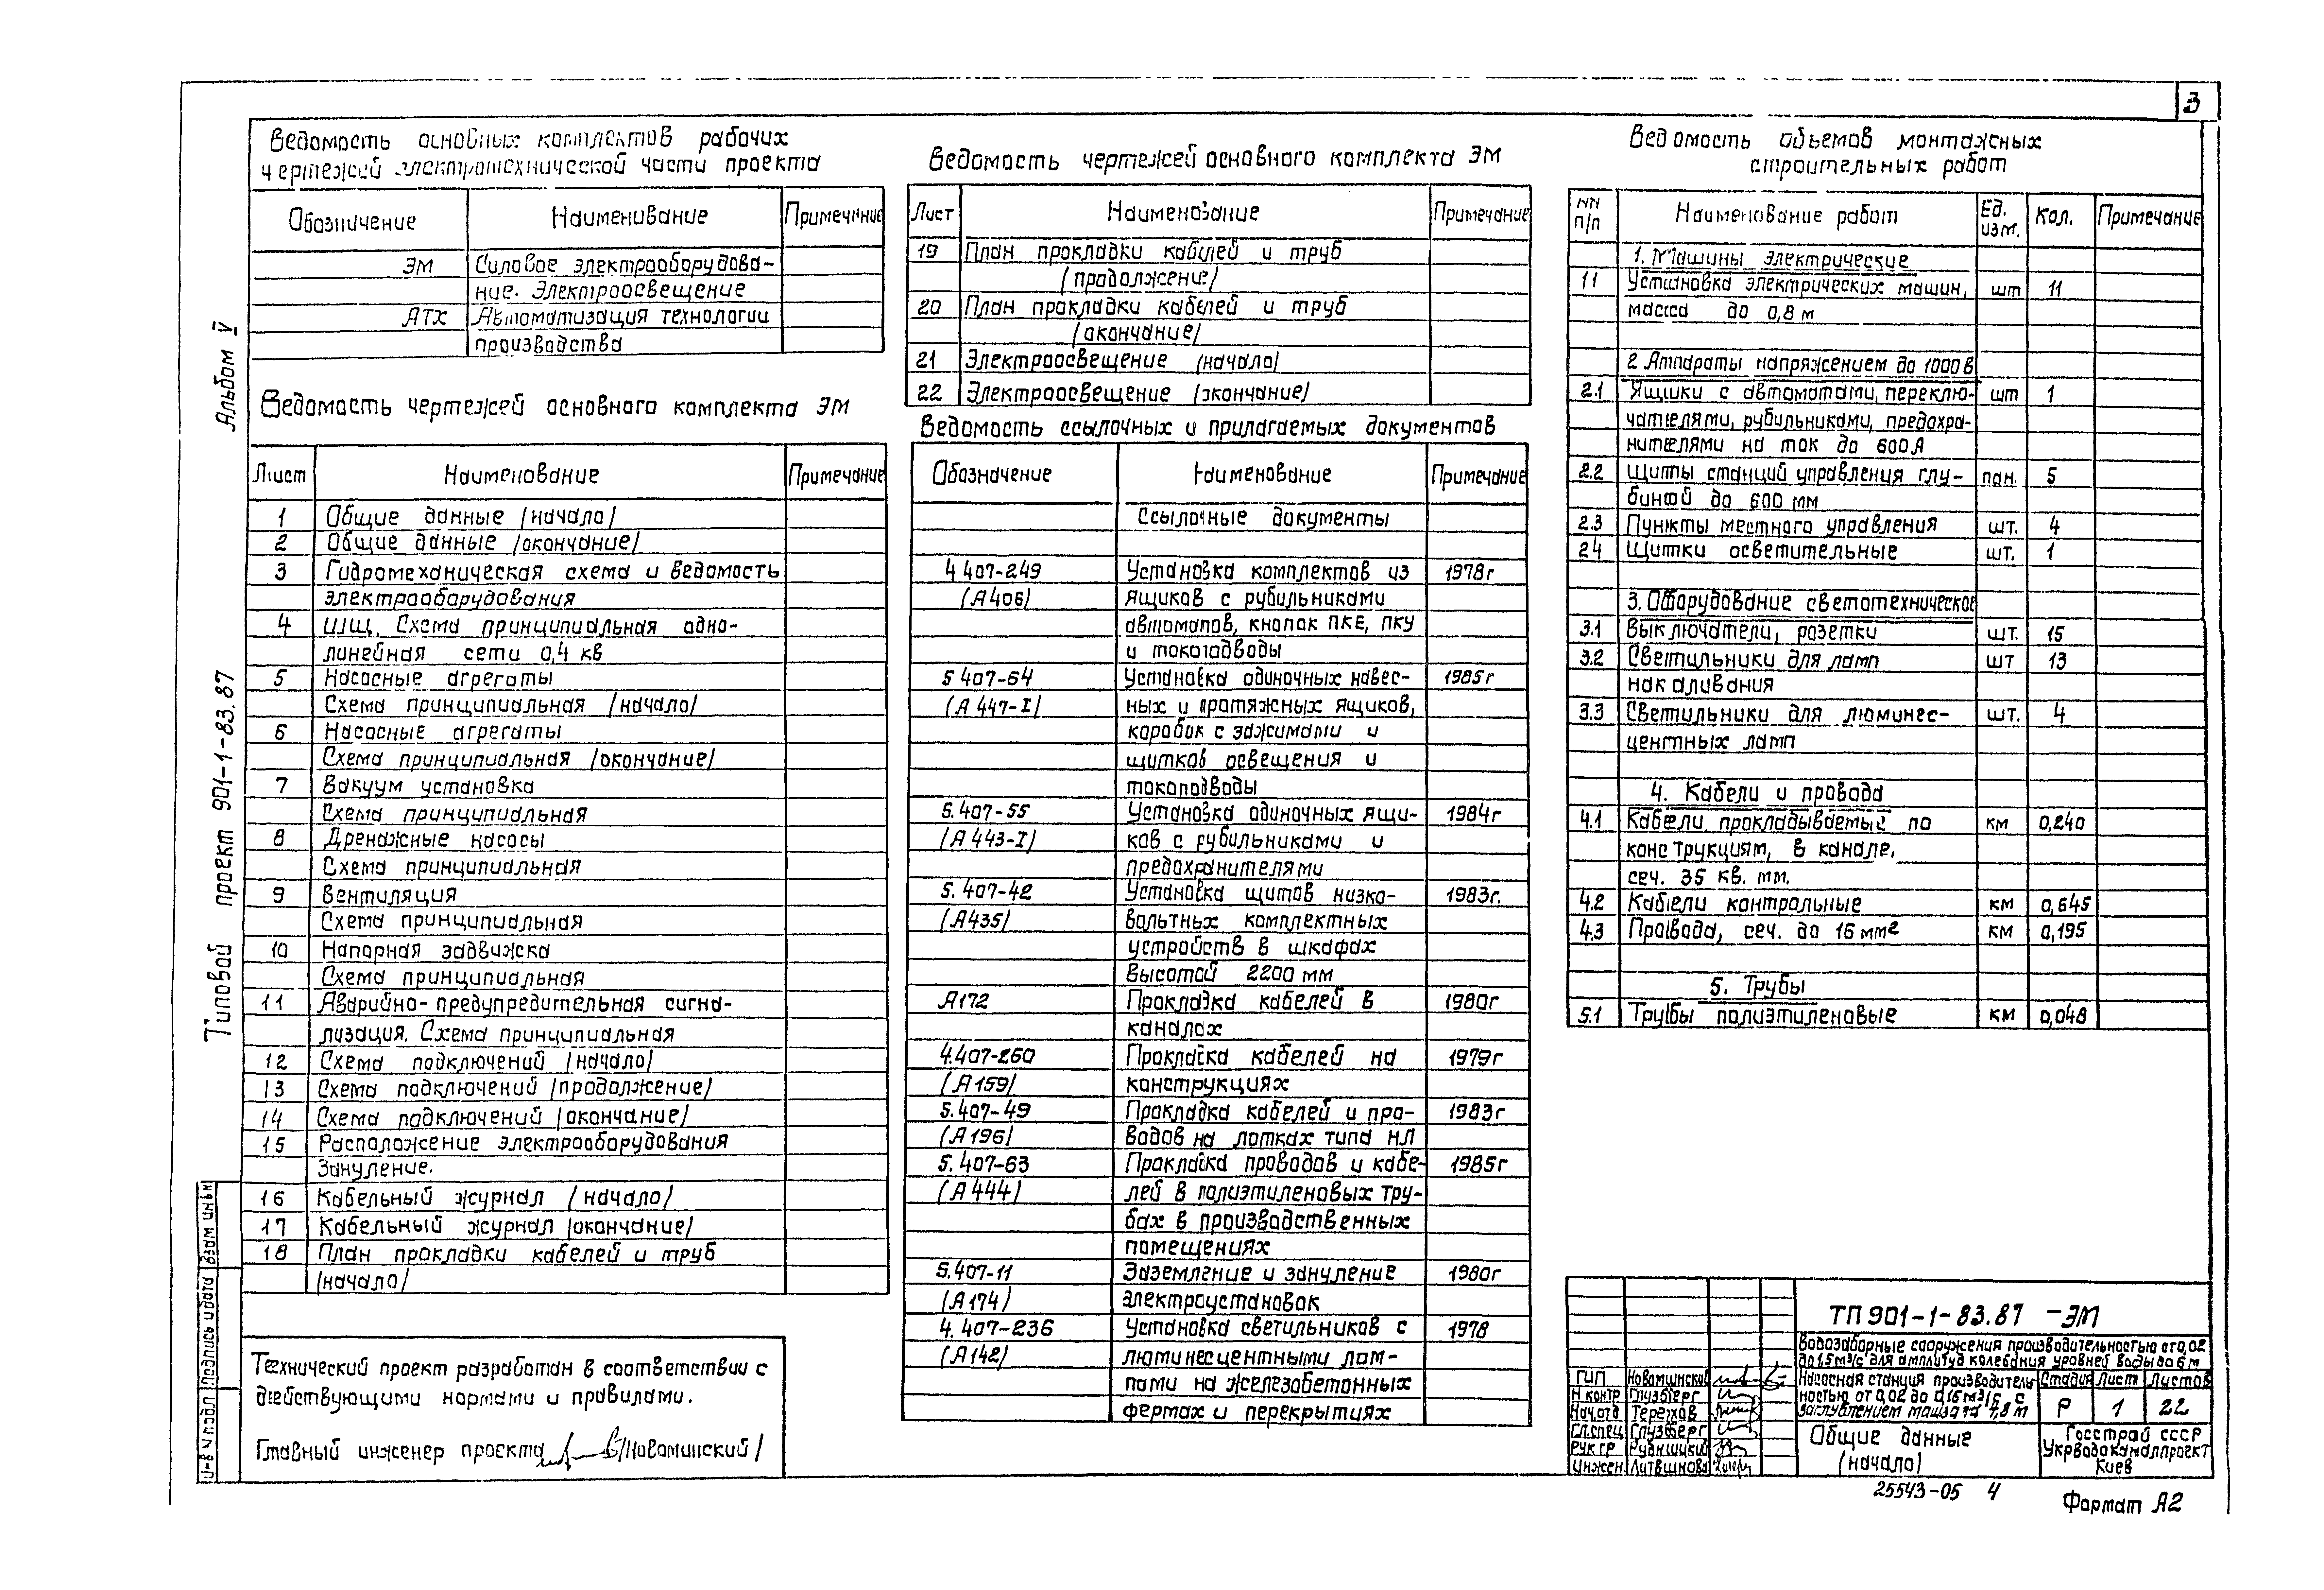 3
Ведомость основных комплектов рабочих
чертежей электротехнической части проекта
Обозначение Наименование Примечание
ЭМ Силовое электрооборудова-
ние. Электроосвещение
АТХ Автоматизация технологии
производства
Ведомость чертежей основного комплекта ЭМ
Лист Наименование Примечание
1 Общие данные /начало/
2 Общие данные /окончание/
3 Гидромеханическая схема и ведомость
электрооборудования
4 ШЩ. Схема принципиальная одно-
линейная сети 0,4 кв
5 Насосные агрегаты
Схема принципиальная /начало/
6 Насосные агрегаты
Схема принципиальная /окончание/
7 Вакуум установка
Схема принципиальная
8 Дренажные насосы
Схема принципиальная
9 Вентиляция
Схема принципиальная
10 Напорная задвижка
Схема принципиальная
11 Аварийно-предупредительная сигна-
лизация. Схема принципиальная
12 Схема подключений /начало/
13 Схема подключений /продолжение/
14 Схема подключений /окончание/
15 Расположение электрооборудования
Зануление.
16 Кабельный журнал /начало/
17 Кабельный журнал /окончание/
18 План прокладки кабелей и труб
/начало/
Технический проект разработан в соответствии с
действующими нормами и правилами.
Главный инженер проекта /Новоминский/
Ведомость чертежей основного комплекта ЭМ
Лист Наименование Примечание
19 План прокладки кабелей и труб
/продолжение/
20 План прокладки кабелей и труб
/окончание/
21 Электроосвещение /начало/
22 Электроосвещение /окончание/
Ведомость ссылочных и прилагаемых документов
Обозначение Наименование Примечание
Ссылочные документы
4 407-249 Установка комплектов из 1978г
/А406/ ящиков с рубильниками
автоматов, кнопок ПКЕ, ПКУ
и токоподводы
5 407-64 Установка одиночных навес- 1985г
/А 447-I/ ных и протяжных ящиков,
коробок с зажимами и
щитков освещения и
токоподводы
5.407-55 Установка одиночных ящи- 1984г
/А 443-I/ ков с рубильниками и
предохранителями
5.407-42 Установка щитов низко- 1983г.
/А435/ вольтных комплектных
устройств в шкафах
высотой 2200 мм
А172 Прокладка кабелей в 1980г
каналах
4.407-260 Прокладка кабелей на 1979г
/А159/ конструкциях
5.407-49 Прокладка кабелей и про- 1983г
/А196/ водов на лотках типа НЛ
5.407-63 Прокладка проводов и кабе- 1985г
/А444/ лей в полиэтиленовых тру-
бах в производственных
помещениях
5.407-11 Заземление и зануление 1980г
/А174/ электроустановок
4.407-236 Установка светильников с 1978
/А142/ люминесцентными лам-
пами на железобетонных
фермах и перекрытиях
Ведомость объемов монтажных
строительных работ
NN п/п Наименование работ Ед. изм. Кол. Примечание
1. Машины электрические
11 Установка электрических машин, шт 11
масса до 0,8 м
2 Аппараты напряжением до 1000 в
2.1 Ящики с автоматами, переклю- шт 1
чателями, рубильниками, предохра-
нителями на ток до 600А
2.2 Щиты станций управления глу- пан. 5
биной до 600 мм
2.3 Пункты местного управления шт. 4
24 Щитки осветительные шт. 1
3. Оборудование светотехническое
3.1 Выключатели, розетки шт. 15
3.2 Светильники для ламп шт 13
накаливания
3.3 Светильники для люминес- шт. 4
центных ламп
4. Кабели и провода
4.1 Кабели прокладываемые по км 0,240
конструкциям, в канале,
сеч. 35 кв. мм.
4.2 Кабели контрольные км 0,645
4.3 Провода, сеч. до 16 мм2 км 0,195
5. Трубы
5.1 Трубы полиэтиленовые км 0,048
ТП 901-1-83.87 -ЭМ
Водозаборные сооружения производительностью от 0,02
до 1,5 м3/с для амплитуд колебания уровней воды до 6 м
ГИП Новоминский
Н контр Глузберг
Нач.отд Терехов
Гл.спец Глузберг
Рук.гр Рудницкий
Инжен. Литвинова
Насосная станция производитель
ностью от 0,02 до 0,15 м3/с, с
заглублением машзала 7,8 м
Стадия Лист Листов
Р 1 22
Общие данные
/начало/
Госстрой СССР
Укрводоканалпроект
Киев
25543-05 4
Формат А2
Альбом V
Типовой проект 901-1-83.87
Взам инв.N
Подпись и дата
Инв N подл